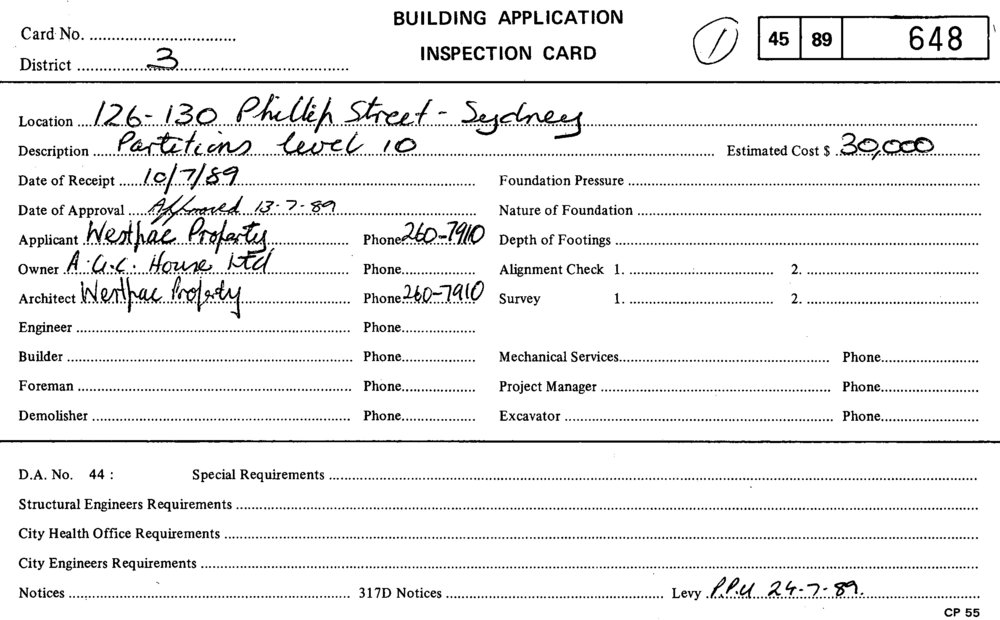 BUILDING APPLICATION
INSPECTION CARD
Card No.
District 3
1 45 89 648
Location 126-130 Phillip Street - Sydney
Description Partitions level 10 Estimated Cost $ 30,000
Date of Receipt 10/7/89 Foundation Pressure
Date of Approval Approved 13-7-89 Nature of Foundation
Applicant Westpac Property Phone 260-7910 Depth of Footings
Owner A.G.C. House Ltd Phone Alignment Check 1. 2.
Architect Westpac Property Phone 260-7910 Survey 1. 2.
Engineer Phone
Builder Phone Mechanical Services Phone
Foreman Phone Project Manager Phone
Demolisher Phone Excavator Phone
D.A. No. 44 : Special Requirements
Structural Engineers Requirements
City Health Office Requirements
City Engineers Requirements
Notices 317D Notices Levy P.P.U 24-7-89.
CP 55